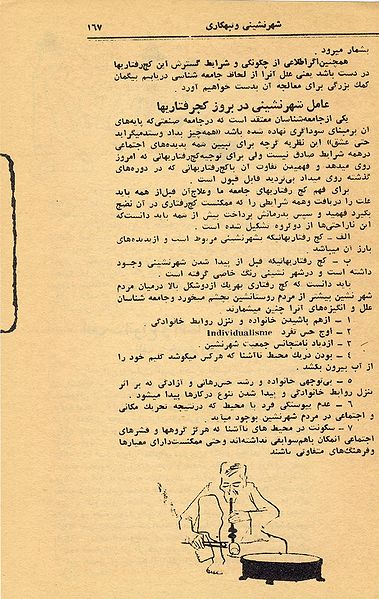 شهرنشینی و تبهکاری
۱۶۷
بشمار میرود .
همچنین اگر اطلاعی از چگونگی و شرایط گسترش این کج رفتاریها
در دست باشد یعنی علل آنرا از لحاظ جامعه شناسی دریابیم بیگمان
کمك بزرگی برای معالجه آن بدست خواهیم آورد .
عامل شهرنشینی در بروز کجرفتاریها
یکی ازجامعه‌شناسان معتقد است که درجامعه صنعتی‌که پایه‌های
آن برمبنای سوداگری نهاده شده باشد «همه‌چیز بداد وستدمیگراید
حتی عشق» این نظریه گرچه برای تبیین همه پدیده‌های اجتماعی
درهمه شرایط صادق نیست ولی برای توجیه‌کج‌رفتاریهائی که امروز
روی میدهد و فهمیدن تفاوت آن باکج‌رفتاریهائی که در دوره‌های
گذشته روی میداد بی‌تردید قابل قبول است .
برای فهم کج رفتاریهای جامعه ما وعلاج‌آن قبل‌از همه باید
علت را دریافت وهمه شرایطی را که ممکنست کج‌رفتاری در آن نضج
بگیرد فهمید و سپس بدرمانش پرداخت بیش از همه باید دانست‌که
این ناراحتی‌ها از دوگروه تشکیل شده است .
الف ـ کج رفتاریهائیکه بشهرنشینی مربوط است و ازپدیده‌های
بارز آن میباشد
ب ـ کج رفتاریهائیکه قبل از پیدا شدن شهرنشینی وجود
داشته است و درشهر نشینی رنگ خاصی گرفته است .
باید دانست که کج رفتاری بهریك ازدوشکل بالا درمیان مردم
شهر نشین بیشتر از مردم روستانشین بچشم میخورد وجامعه شناسان
علل و انگیزه‌های آنرا چنین میشمارند.
۱ ـ ازهم پاشیدن خانواده و تزل روابط خانوادگی.
۲ ـ اوج حس تفرد Individualisme
۳ ـ ازدیاد نامتجانس جمعیت شهرنشین .
۴ ـ بودن دریك محیط ناآشنا که هرکس میکوشد گلیم خود را
از آب بیرون بکشد .
۵ ـ بی‌توجهی خانواده و رشد حس‌رهائی و آزادگی که بر اثر
تزل روابط خانوادگی و پیدا شدن تنوع درکارها پیدا میشود .
۶ ـ عدم پیوستگی فرد با محیط که درنتیجه تحریك مکانی
و اجتماعی در مردم شهرنشین بوجود میآید
۷ ـ سکونت در محیط های ناآشنا که هرگز گروهها و قشرهای
اجتماعی آنمکان باهم‌سوابقی نداشته‌اند وحتی ممکنست‌دارای معیارها
وفرهنگ‌های متفاوتی باشند